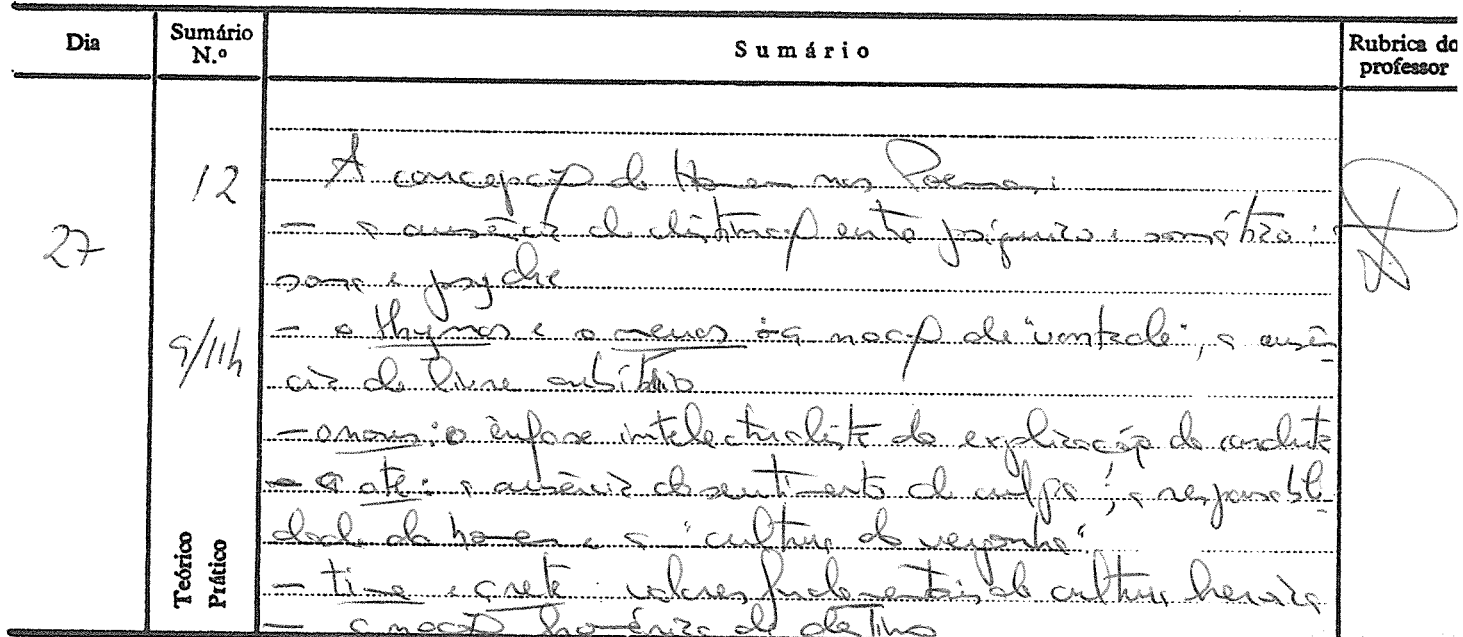 Dia
Sumário N.º
Sumário
Rubrica do professor
27
12
9/11h
Teórico
Prático
A concepção do Homem nos Poemas:
- a ausência de distinção entre psíquico e somático:
soma e psyche
- o thymos e o menos: a noção de "vontade", a ausên
cia de livre arbítrio
- o nous: o ênfase intelectualista da explicação da conduta
- a ate: a ausência do sentimento de culpa; a responsabili
dade do homem e a "cultura da vergonha"
- time e arete: valores fundamentais da cultura heroica
- a noção homérica de destino